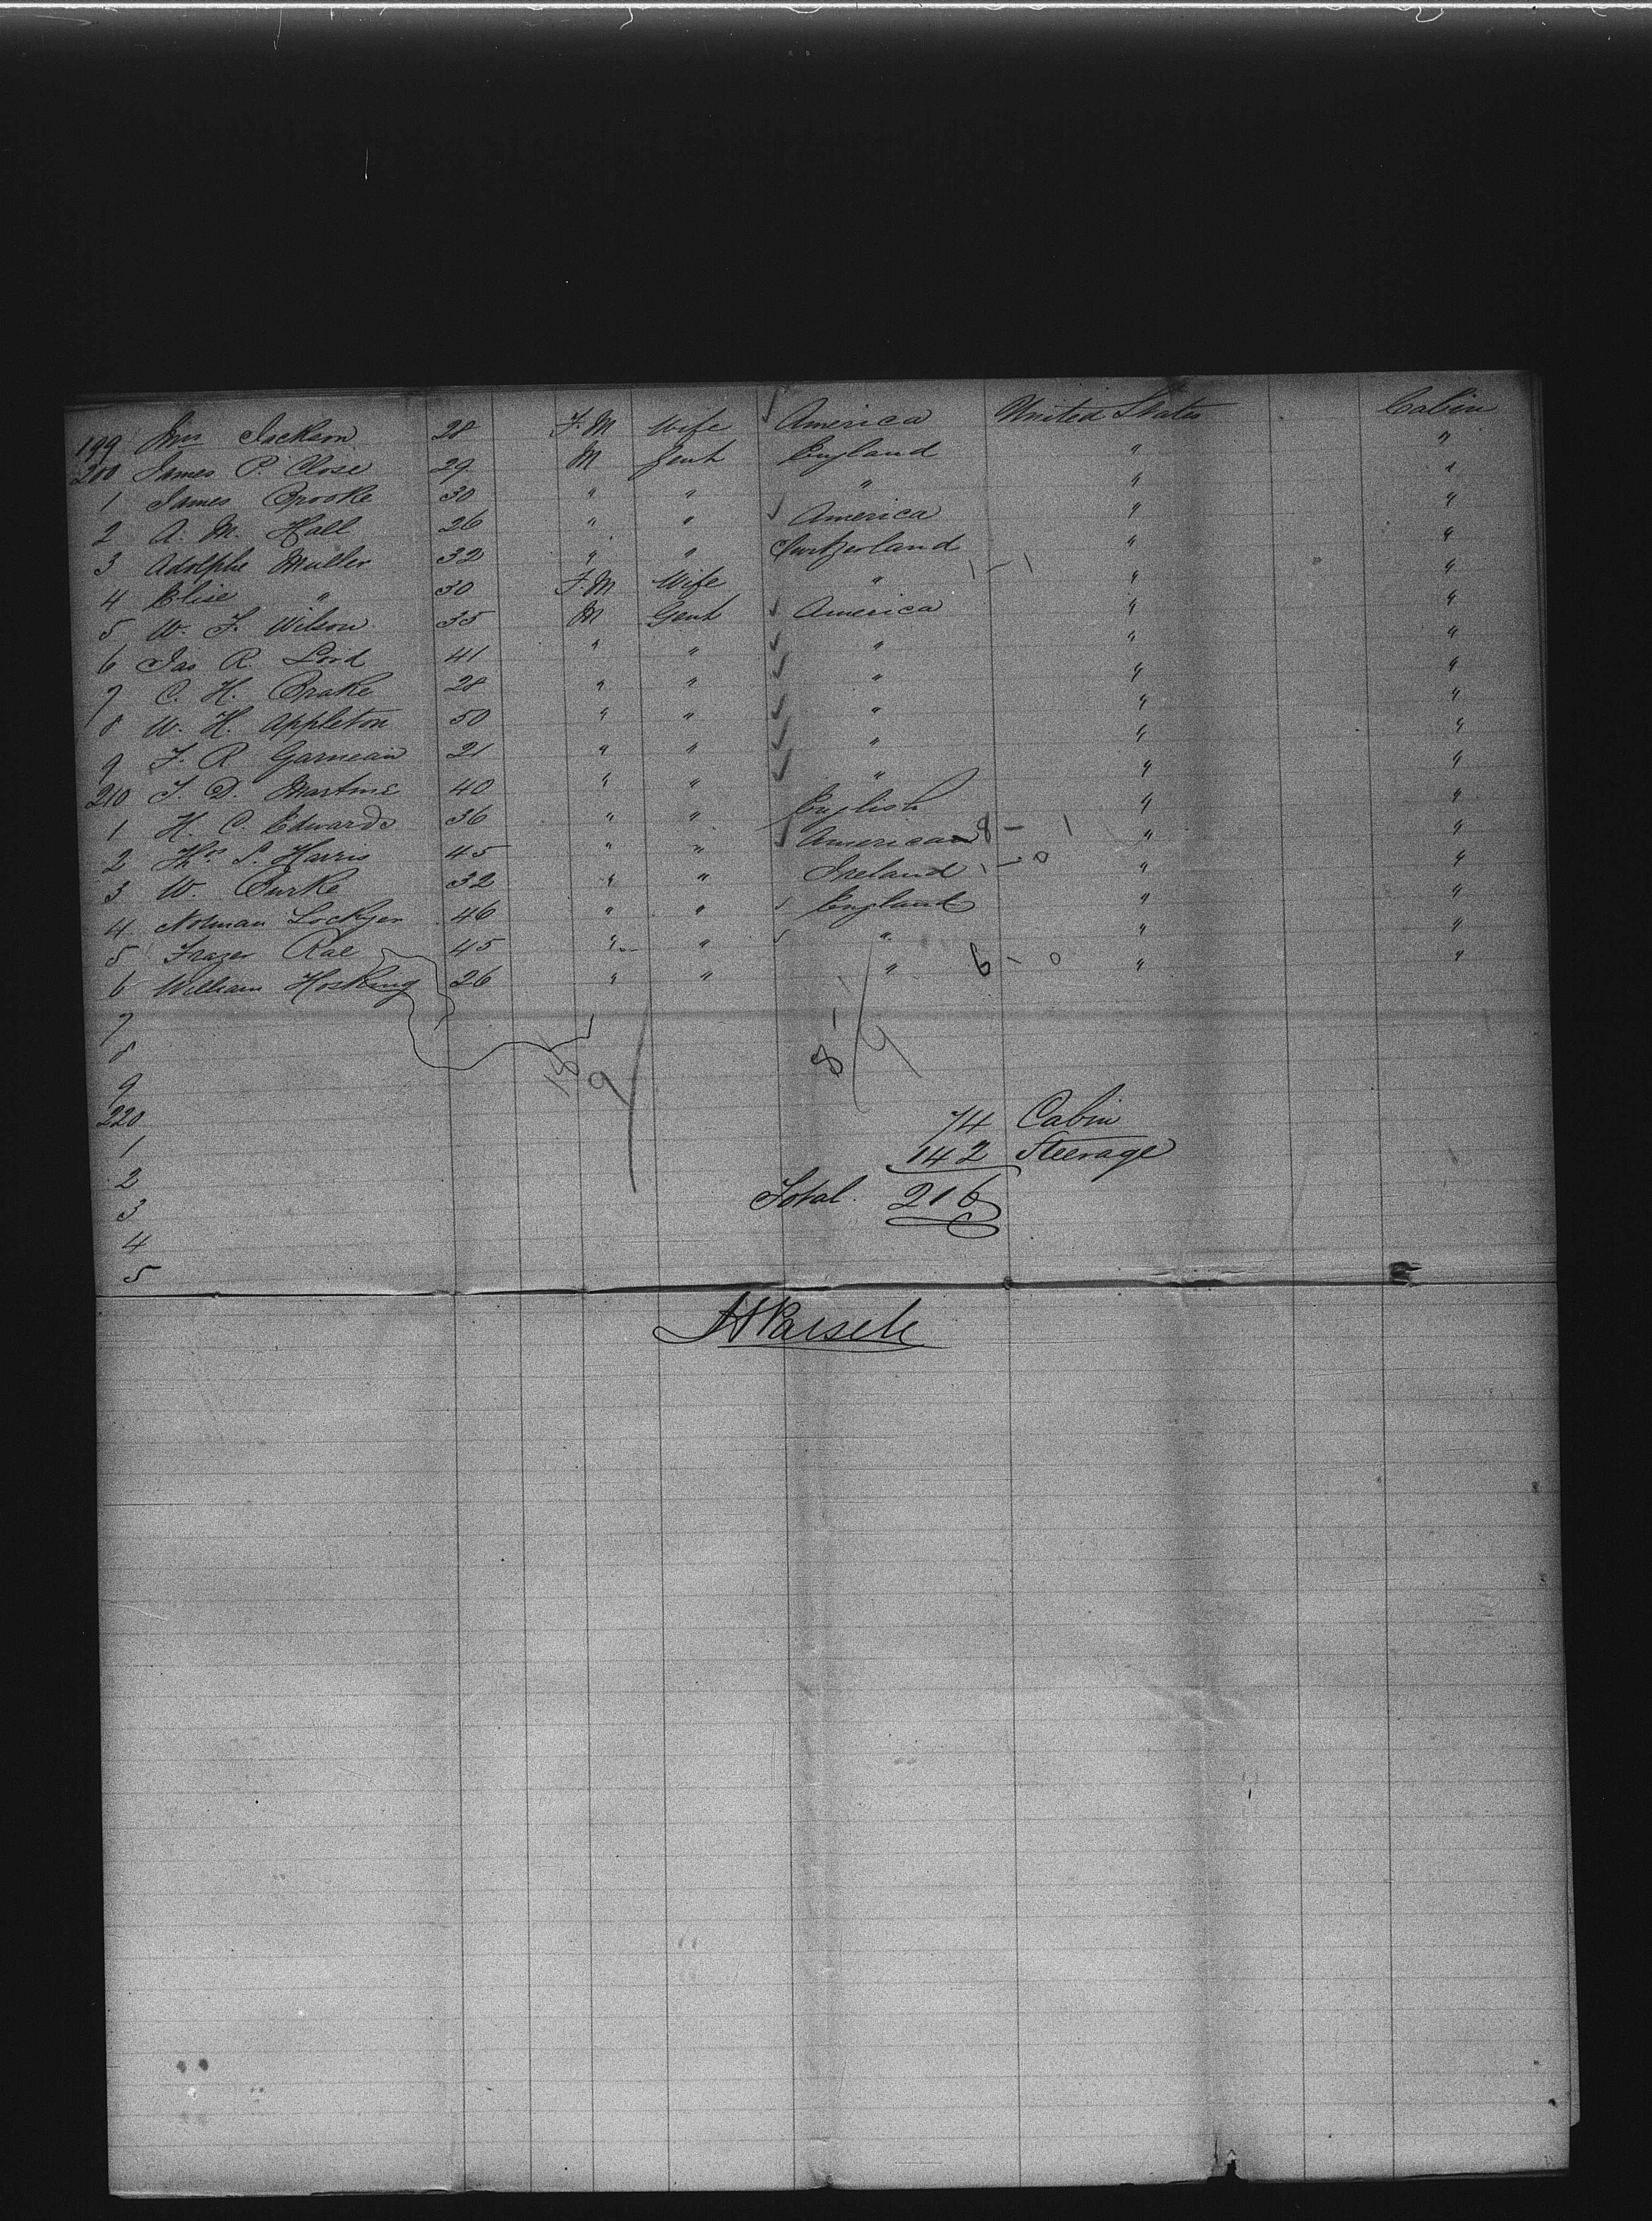 199 Mrs Jackson 28 F. M Wife America United States Cabin
200 James P. Close 29 M Gent England " "
1 James Brooke 30 " " " " "
2 A. M. Hall 26 " " America " "
3 Adolphe Muller 32 " " Switzerland " "
4 Elise " 30 F. M Wife " 1 - 1 " "
5 W. F. Wilson 35 M Gent America " "
6 Jas R. Lord 41 " " " " "
7 C. H. Brake 28 " " " " "
8 W. H. Appleton 50 " " " " "
9 F. R Garneau 21 " " " " "
210 J. D. Martine 40 " " " " "
1 H. C. Edwards 36 " " English " "
2 Thos S. Harris 45 " " American 8 - 1 " "
3 W. Burke 32 " " Ireland 1 - 0 " "
4 Norman Lockyer 46 " " England " "
5 Frazer Rae 45 " " " " "
6 William Hosking 26 " " " 6 - 0 " "
7
8
9
220 74 Cabin
1 142 Steerage
2 Total 216
3
4
5